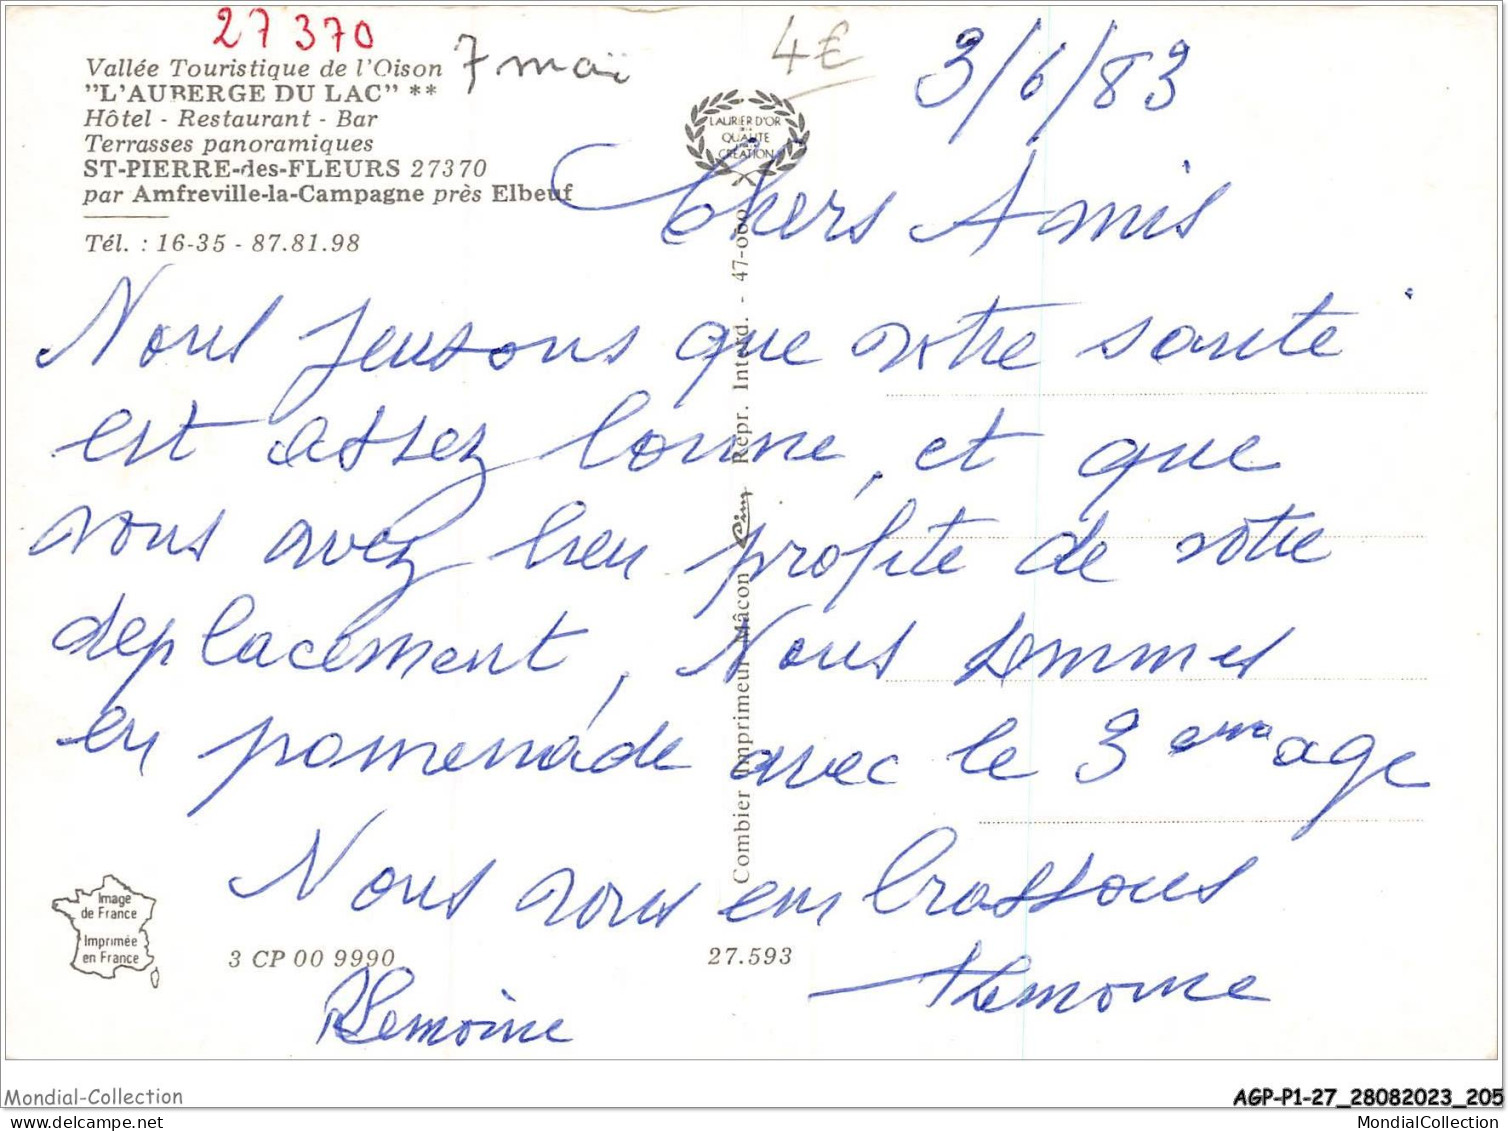 27 370
7 mai
4€
3/6/83
Vallée Touristique de l'Oison
"L'AUBERGE DU LAC" **
Hôtel - Restaurant - Bar
Terrasses panoramiques
ST-PIERRE-des-FLEURS 27370
par Amfreville-la-Campagne près Elbeuf
Tél. : 16-35 - 87.81.98
LAURIER D'OR
QUALITE
CREATION
Chers Amis
Nous pensons que votre sante
est assez bonne, et que
vous avez bien profite de votre
deplacement, Nous sommes
en promenade avec le 3 eme age
Nous vous embrassons
Lemoine
Lemoine
Combier Imprimeur Mâcon Cim Repr. Interd. - 47-000
Image
de France
Imprimée
en France
3 CP 00 9990
27.593
Mondial-Collection
AGP-P1-27_28082023_205
MondialCollection